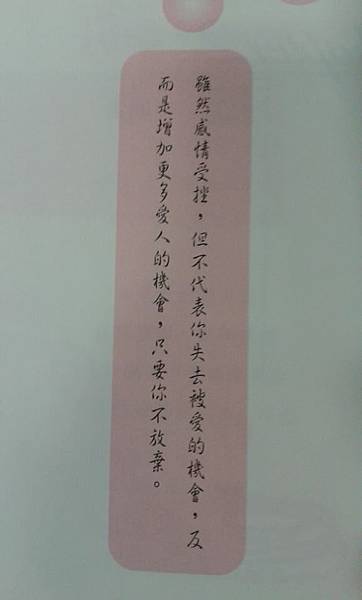 雖然感情受挫，但不代表你失去被愛的機會，反
而是增加更多愛人的機會，只要你不放棄。